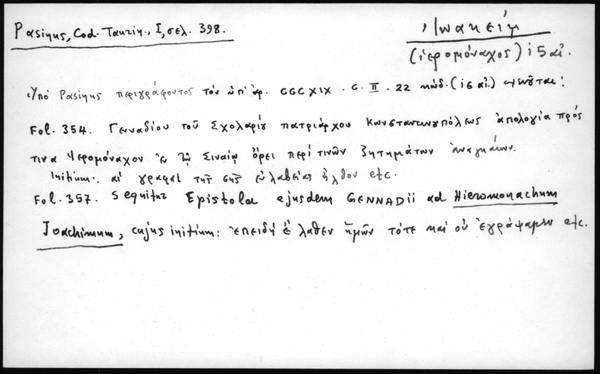 Pasinus, Cod. Taurin., I, σελ. 398.
Ἰωακείμ
(ἱερομόναχος) ι5 αἰ.
Ὑπὸ Pasinus περιγράφοντος τὸν ὑπ' ἀρ. CCCXIX. C. II. 22 κώδ. (ις αἰ.) σημοῦται:
Fol. 354. Γενναδίου τοῦ Σχολαρίου πατριάρχου Κωνσταντινουπόλεως ἀπολογία πρός
τινα Ἱερομόναχον ἐν τῷ Σιναίῳ ὄρει περί τινῶν ζητημάτων ἀναγκαίων.
Initium: αἱ γραφαὶ τῆς σῆς εὐλαβείας ἦλθον etc.
Fol. 357. Sequitur Epistola ejusdem GENNADII ad Hieromonachum
Joachimum, cujus initium: ἐπειδὴ ἔλαθεν ἡμῶν τότε καὶ οὐ ἐγράψαμεν etc.